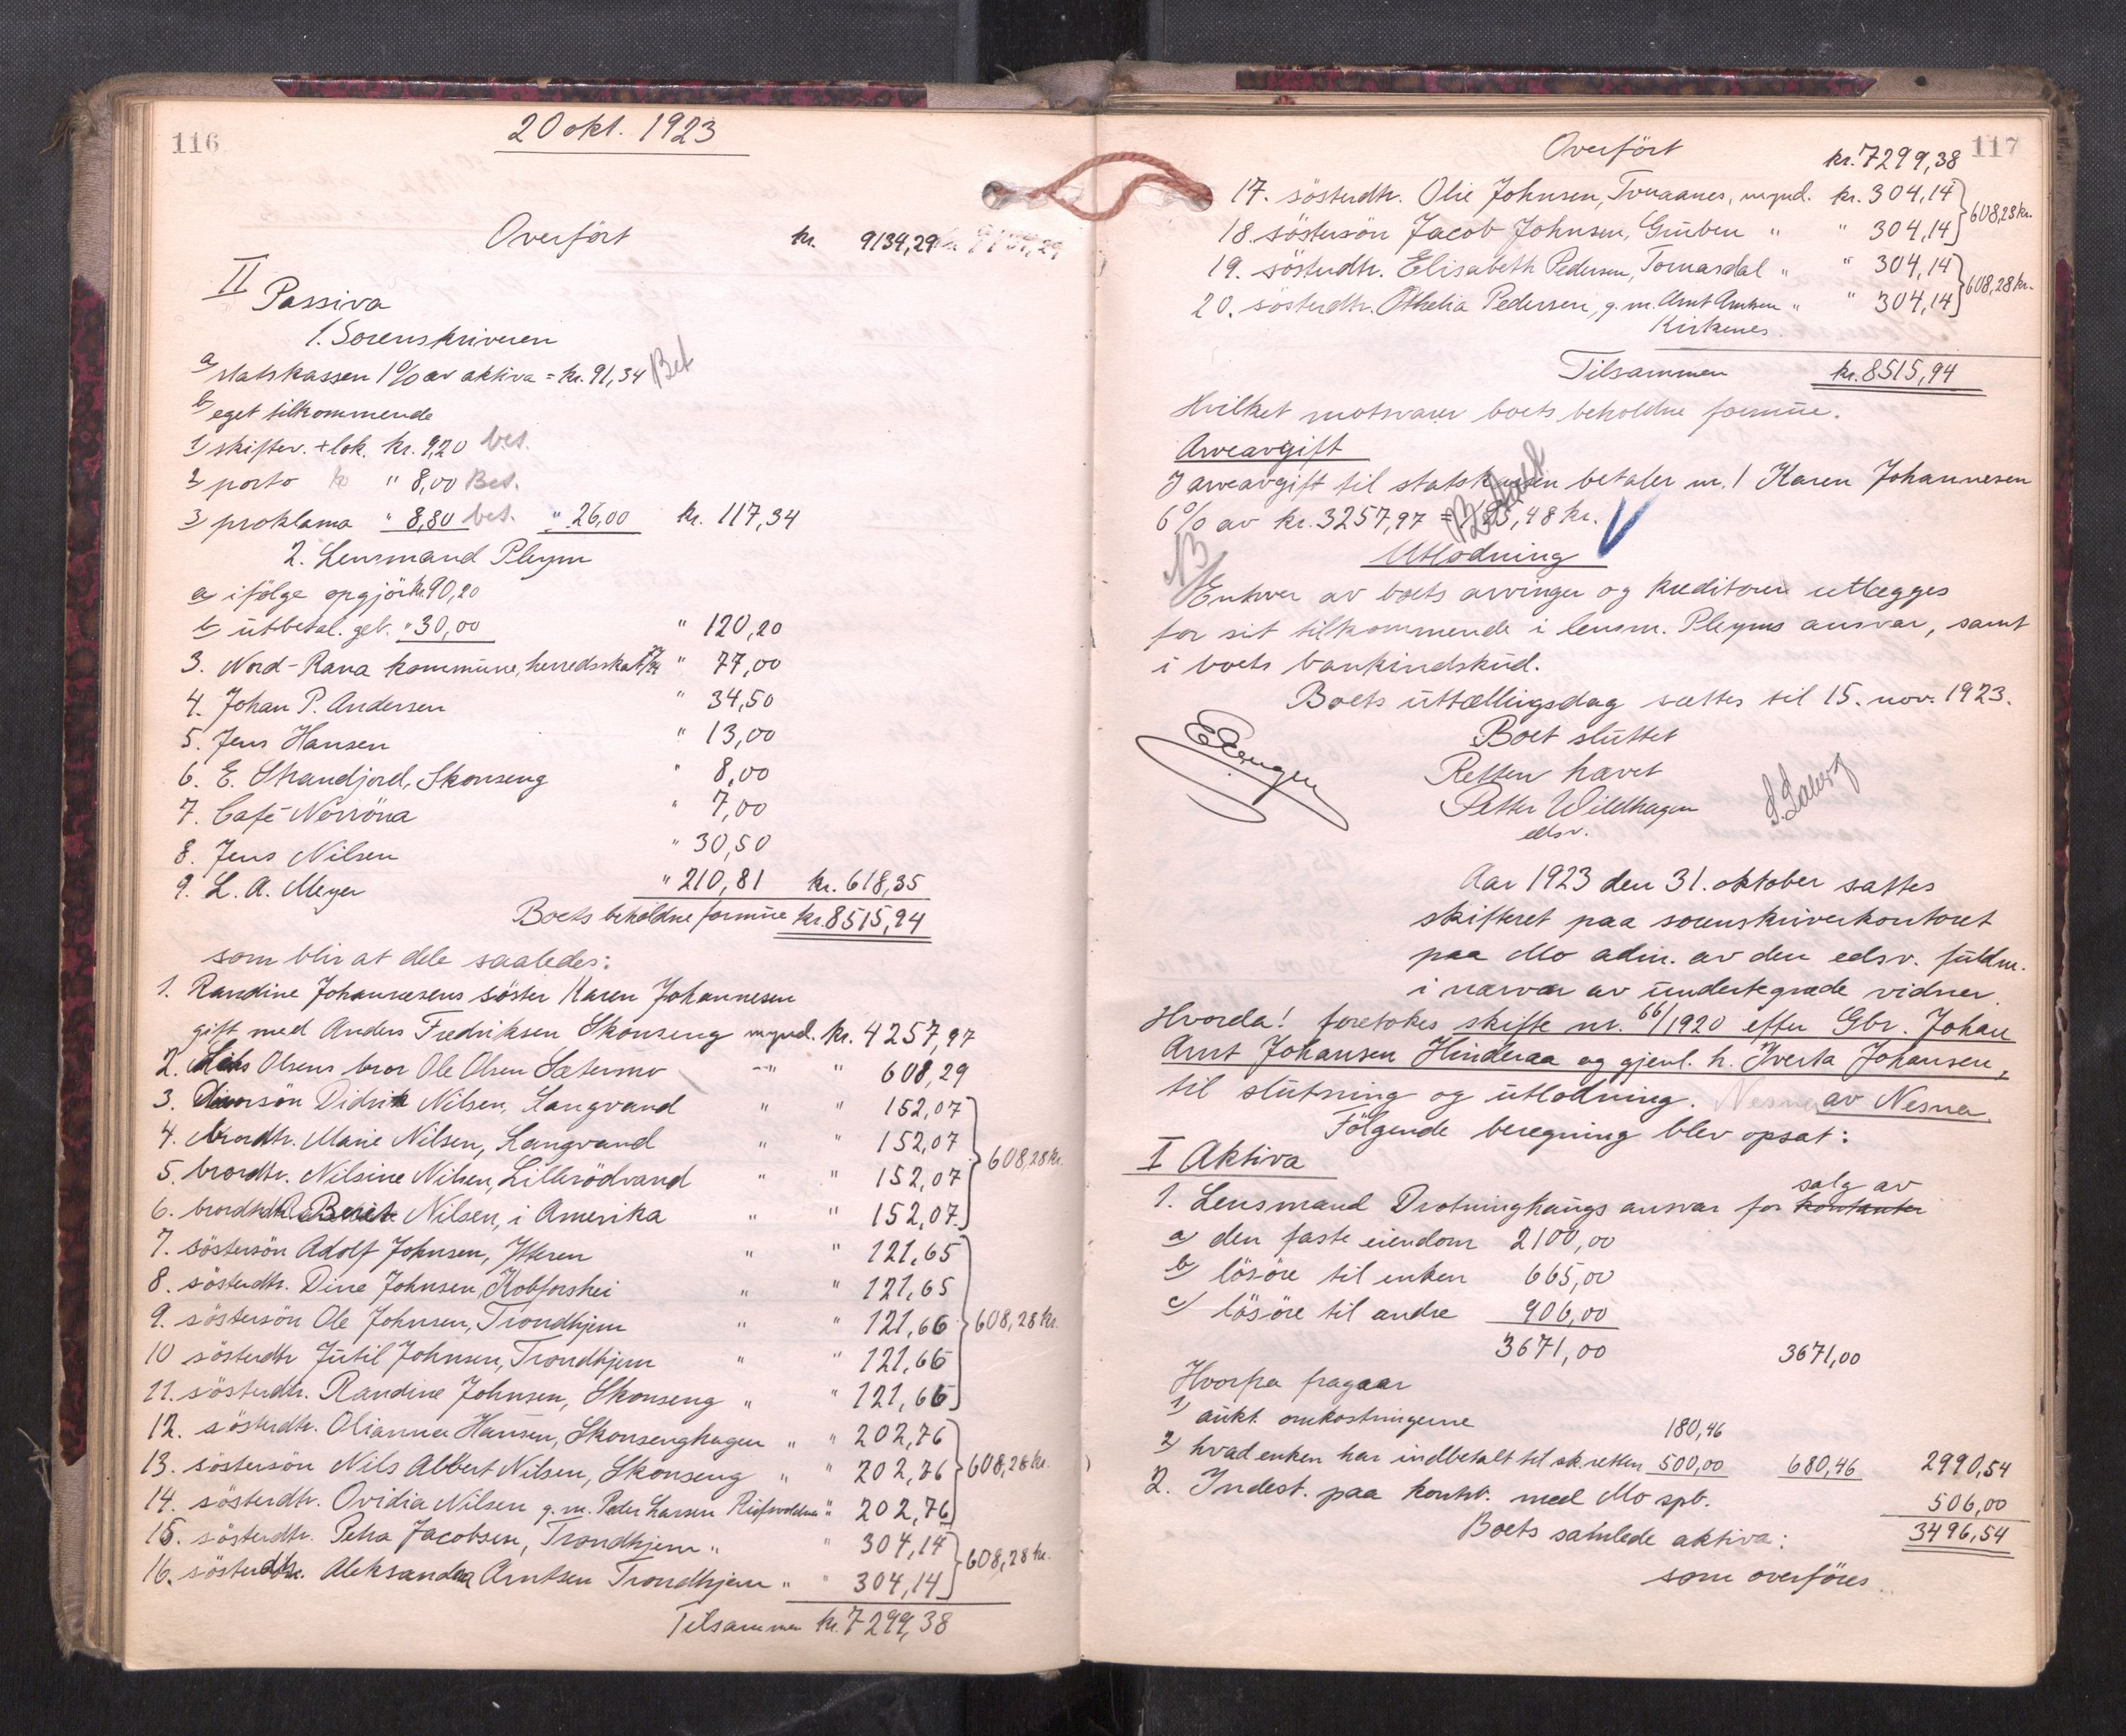 116
20 okt. 1923
Overført kr. 9134,29
II
Passiva
1. Sorenskriveren
a) statskassen 1% av aktiva = kr. 91,34 Bet
b) eget tilkommende
1) skifter. + lok. kr. 9,20 bet.
2) porto " 8,00 Bet.
3) proklama " 8,80 bet. " 26,00 kr. 117,34
2. Lensmand Pleym
a) ifölge opgjör kr. 90,20
b) utbetal. geb. " 30,00 " 120,20
3. Nord-Rana kommune, herredsskat " 77,00
4. Johan P. Andersen " 34,50
5. Jens Hansen " 13,00
6. E. Strandjord, Skonseng " 8,00
7. Café Norröna " 7,00
8. Jens Nilsen " 30,50
9. L. A. Meyer " 210,81 kr. 618,35
Boets beholdne formue kr. 8515,94
som blir at dele saaledes:
1. Randine Johannesens söster Karen Johannesen
gift med Anders Fredriksen Skonseng mynd. kr. 4257,97
2. Olsens bror Ole Olsen Sætermo " " 608,29
3. Didrik Nilsen, Langvand " " 152,07
4. brordtr. Marie Nilsen, Langvand " " 152,07
5. brordtr. Nilsine Nilsen, Lillerödvand " " 152,07 608,28 kr.
6. brordtr. Berit Nilsen, i Amerika " " 152,07
7. söstersön Adolf Johnsen, Ytteren " " 121,65
8. sösterdtr. Dine Johnsen, Kobforshei " " 121,65
9. söstersön Ole Johnsen, Trondhjem " " 121,66 608,28 kr.
10 sösterdtr Jutil Johnsen, Trondhjem " " 121,66
11. sösterdtr. Randine Johnsen, Skonseng " " 121,66
12. sösterdtr. Olianna Hansen, Skonsenghagen " " 202,76
13. söstersön Nils Albert Nilsen, Skonseng " " 202,76 608,28 kr.
14. sösterdtr. Ovidia Nilsen g. m. Peder Larsen " 202,76
15. sösterdtr. Petra Jacobsen, Trondhjem " " 304,14
16. sösterdtr. Aleksandra Arntsen Trondhjem " " 304,14 608,28 kr.
Tilsammen kr. 7299,38
117
Overfört kr. 7299,38
17. sösterdtr. Olie Johnsen, mynd. kr. 304,14
18. söstersön Jacob Johnsen, Gruben " " 304,14 608,28 kr.
19. sösterdtr. Elisabeth Pedersen, Tomasdal " " 304,14
20. sösterdtr. Othelia Pedersen, g. m. Arnt Arntsen " " 304,14 608,28 kr.
Kirkenes.
Tilsammen kr. 8515,94
Hvilket motsvarer boets beholdne formue.
Arveavgift
I arveavgift til statskassen betaler nr. 1 Karen Johannesen
6% av kr. 3257,97 = 195,48 kr.
Betalt
Utlodning
NB
Enhver av boets arvinger og kreditorer utlægges
for sit tilkommende i lensm. Pleyms ansvar, samt
i boets bankindskud.
Boets uttællingsdag sættes til 15. nov. 1923.
Boet sluttet
Retten hævet
Petter Wildhagen
edsv.
Aar 1923 den 31. oktober sattes
skifteret paa sorenskriverkontoret
paa Mo adm. av den edsv. fuldm.
i nærvær av undertegnede vidner.
Hvorda! foretokes skifte nr. 66/1920 efter Gbr. Johan
Arnt Johansen Hinderaa og gjenl. h. Iverta Johansen,
til slutning og utlodning. av Nesna
Fölgende beregning blev opsat:
I Aktiva
salg av
1. Lensmand Drotninghaugs ansvar for kontanter
a) den faste eiendom 2100,00
b) lösöre til enken 665,00
c) lösöre til andre 906,00
3671,00 3671,00
Hvorfra fragaar
1) aukt. omkostningerne 180,46
2) hvad enken har indbetalt til sk. retten 500,00 680,46 2990,54
2. Indest. paa kontrb. med Mo spb. 506,00
Boets samlede aktiva: 3496,54
som overföres